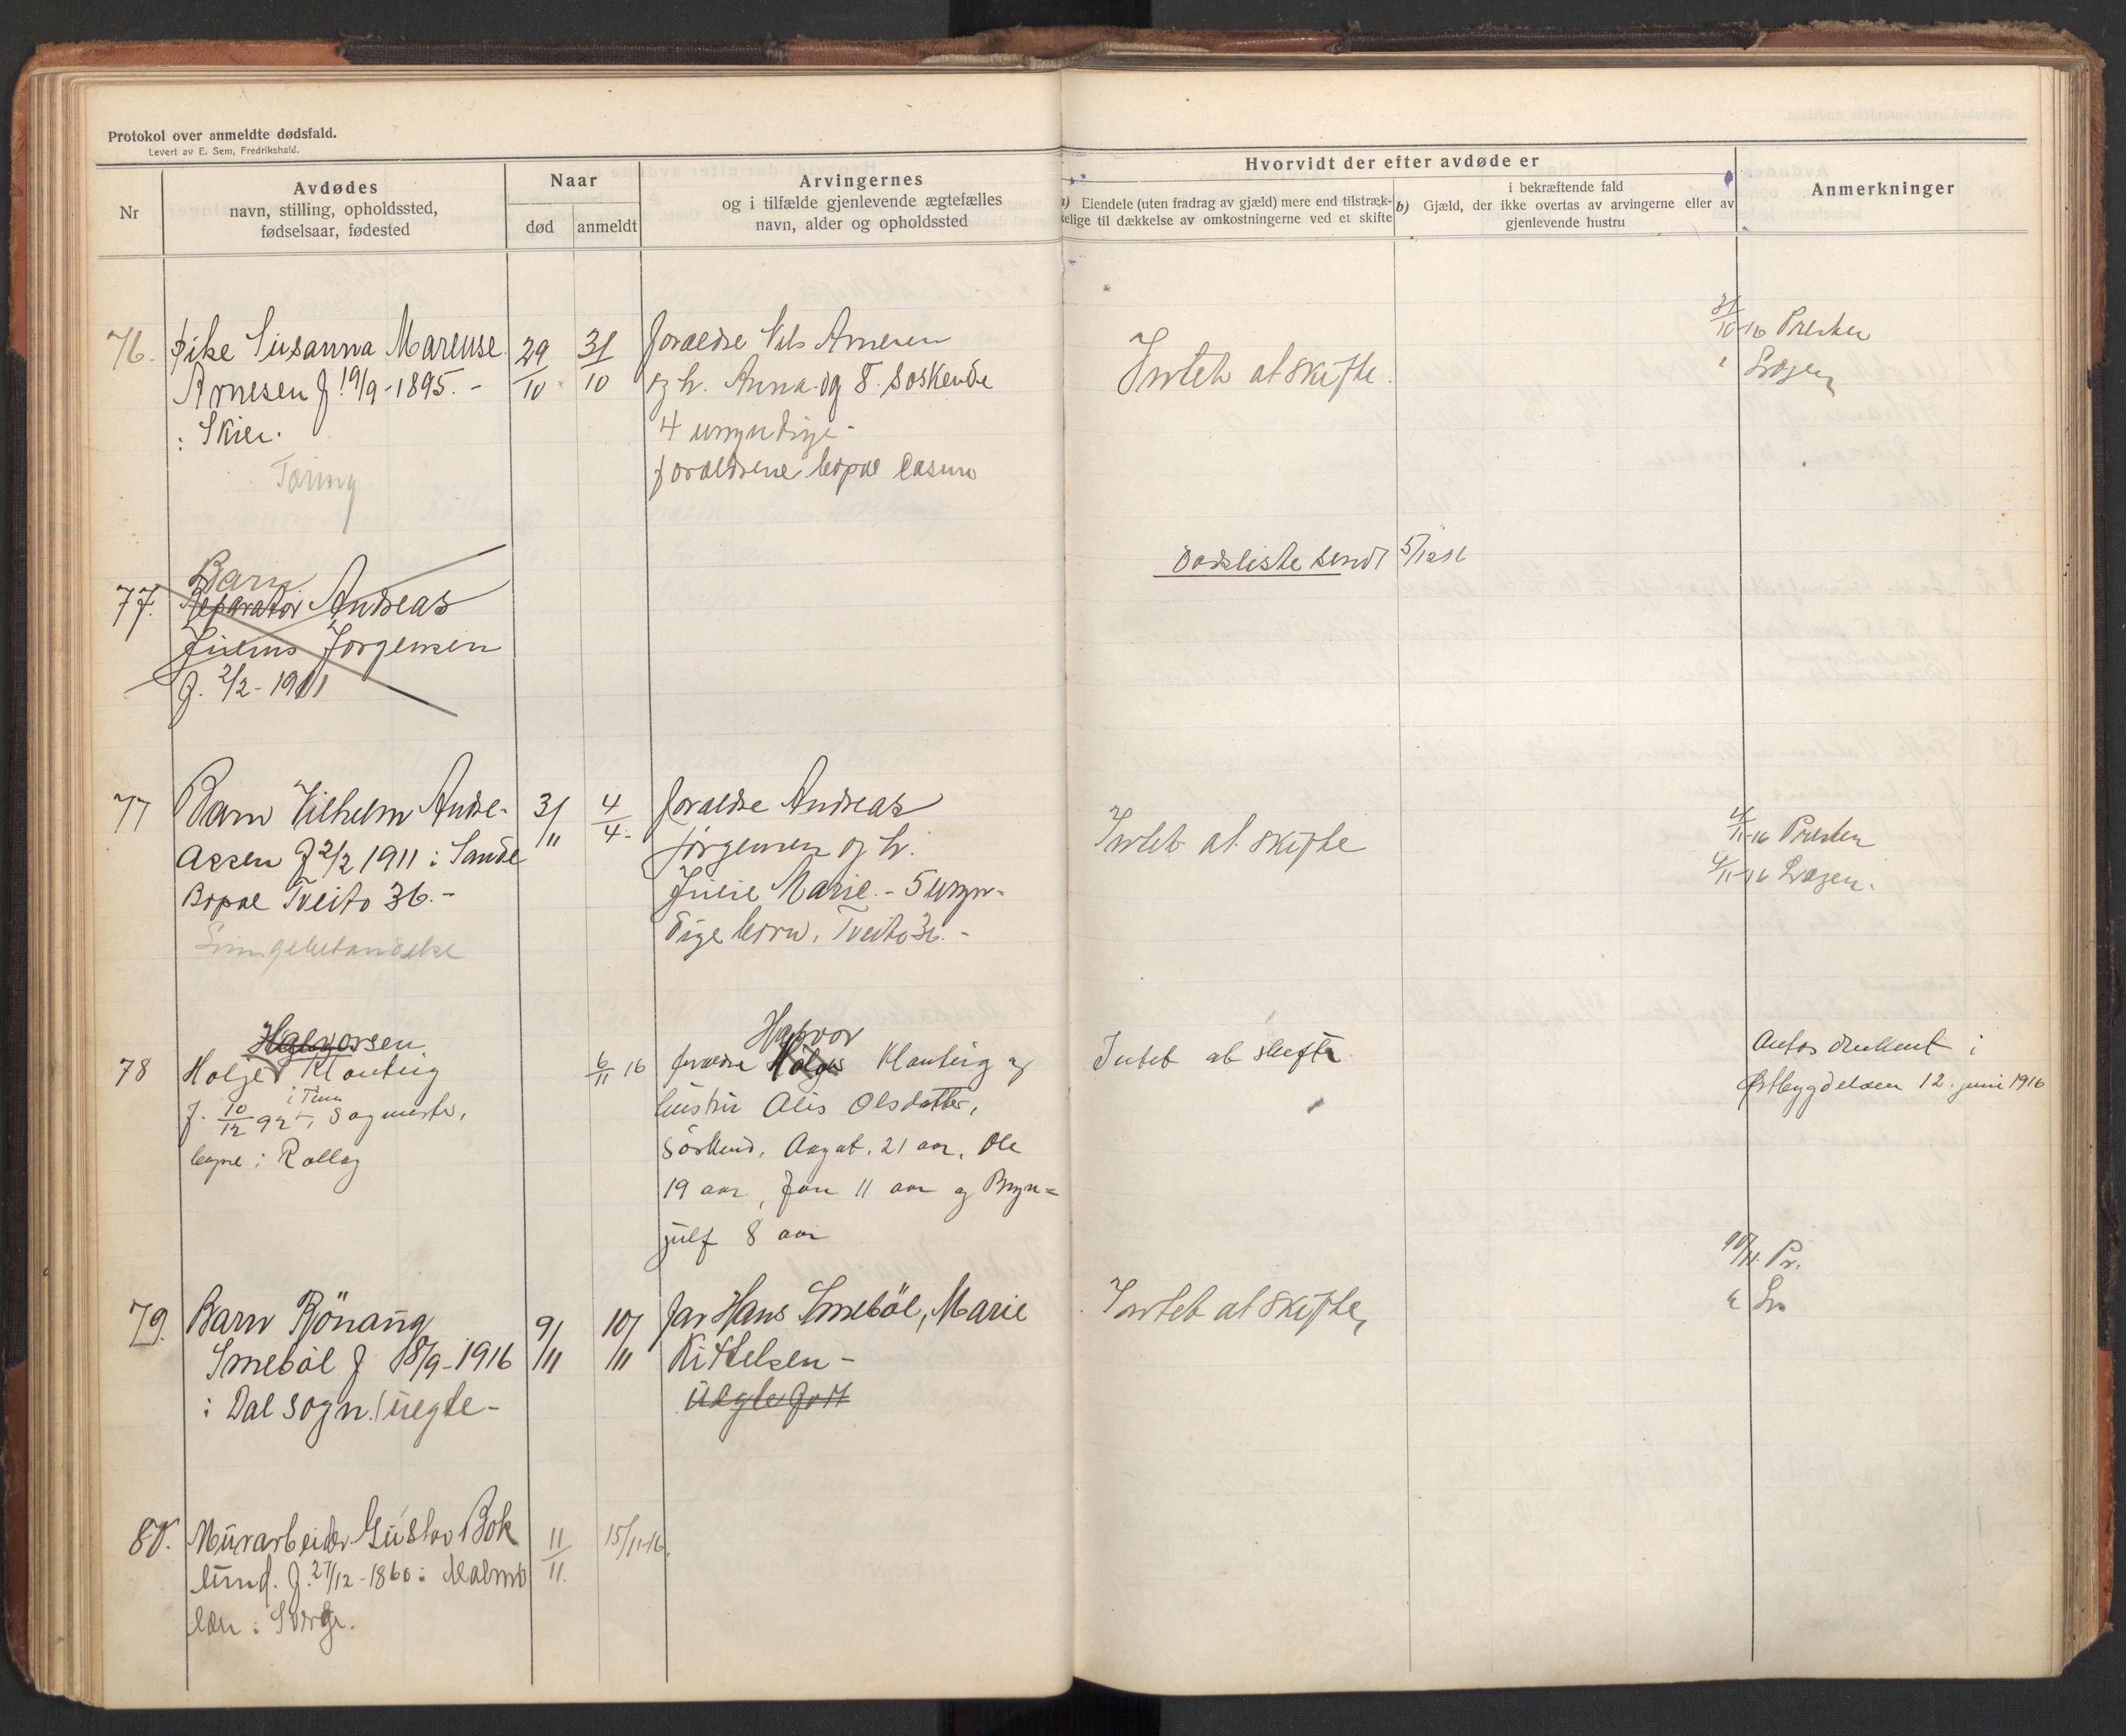 Protokol over anmeldte dødsfald.
Levert av E. Sem, Fredrikshald.
Nr
Avdødes
navn, stilling, opholdssted,
fødselsaar, fødested
Naar
død
anmeldt
Arvingernes
og i tilfælde gjenlevende ægtefælles
navn, alder og opholdssted
Hvorvidt der efter avdøde er
a) Eiendele (uten fradrag av gjæld) mere end tilstræk-
kelige til dækkelse av omkostningerne ved et skifte
b)
i bekræftende fald
Gjæld, der ikke overtas av arvingerne eller av
gjenlevende hustru
Anmerkninger
76.
Pike Susanna Marense
Arnesen f. 19/9-1895.-
i Skien.
Tæring
29/10
31/10
foraldre Nils Arnesen
og h. Anna og 8 søskende
4 umyndige -
foraldrene bopæl Casino
Intet at skifte.
31/10-16 Presten
" Lægen
Dødsliste sendt 5/12 16
77.
Barn
Reparatør Andreas
Julius Jørgensen
f. 2/2-1911
77
Barn Vilhelm Andre-
assen f 2/2 1911 i Sande
Bopæl Tveito 36.-
Lungebetændelse
3/11
4/4.
foraldre Andreas
Jørgensen og h.
Julie Marie.- 5 umyn-
dige børn, Tveito 36.-
Intet at skifte
4/11-16 Presten
4/11-16 Lægen.
78
Halvorsen
Holger Klonteig
i Tinn
f. 10/12 92, Sagmester,
bopæl i Rollag
6/11 16
Halvor
forældre Holger Klonteig og
hustru Alis Olsdatter,
Søskend, Aagot. 21 aar, Ole
19 aar, Jon 11 aar og Bryn=
julf 8 aar
Intet at skifte
Antas druknet i
Østbygdelven 12. juni 1916
79.
Barn Rönaug
Smebøl f 18/9-1916
i Dal sogn. uegte-
9/11
10/11
far Hans Smeböl, Marie
Kittelsen -
uegte født
Intet at skifte,
10/11. Pr.
" Læ
80.
Murarbeider Gustav Bok
lund. f. 27/12-1860 i Malmö
län i Sverge.
11/11.
15/11-16.